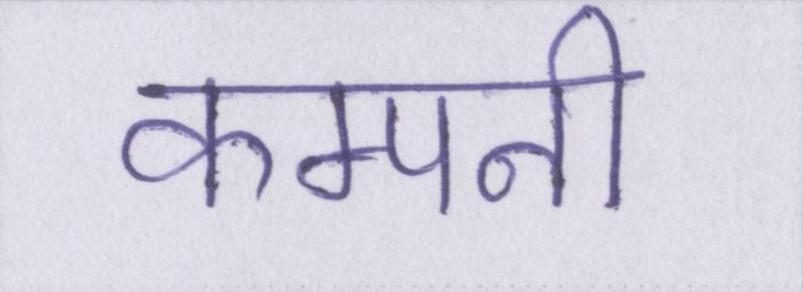 कम्पनी